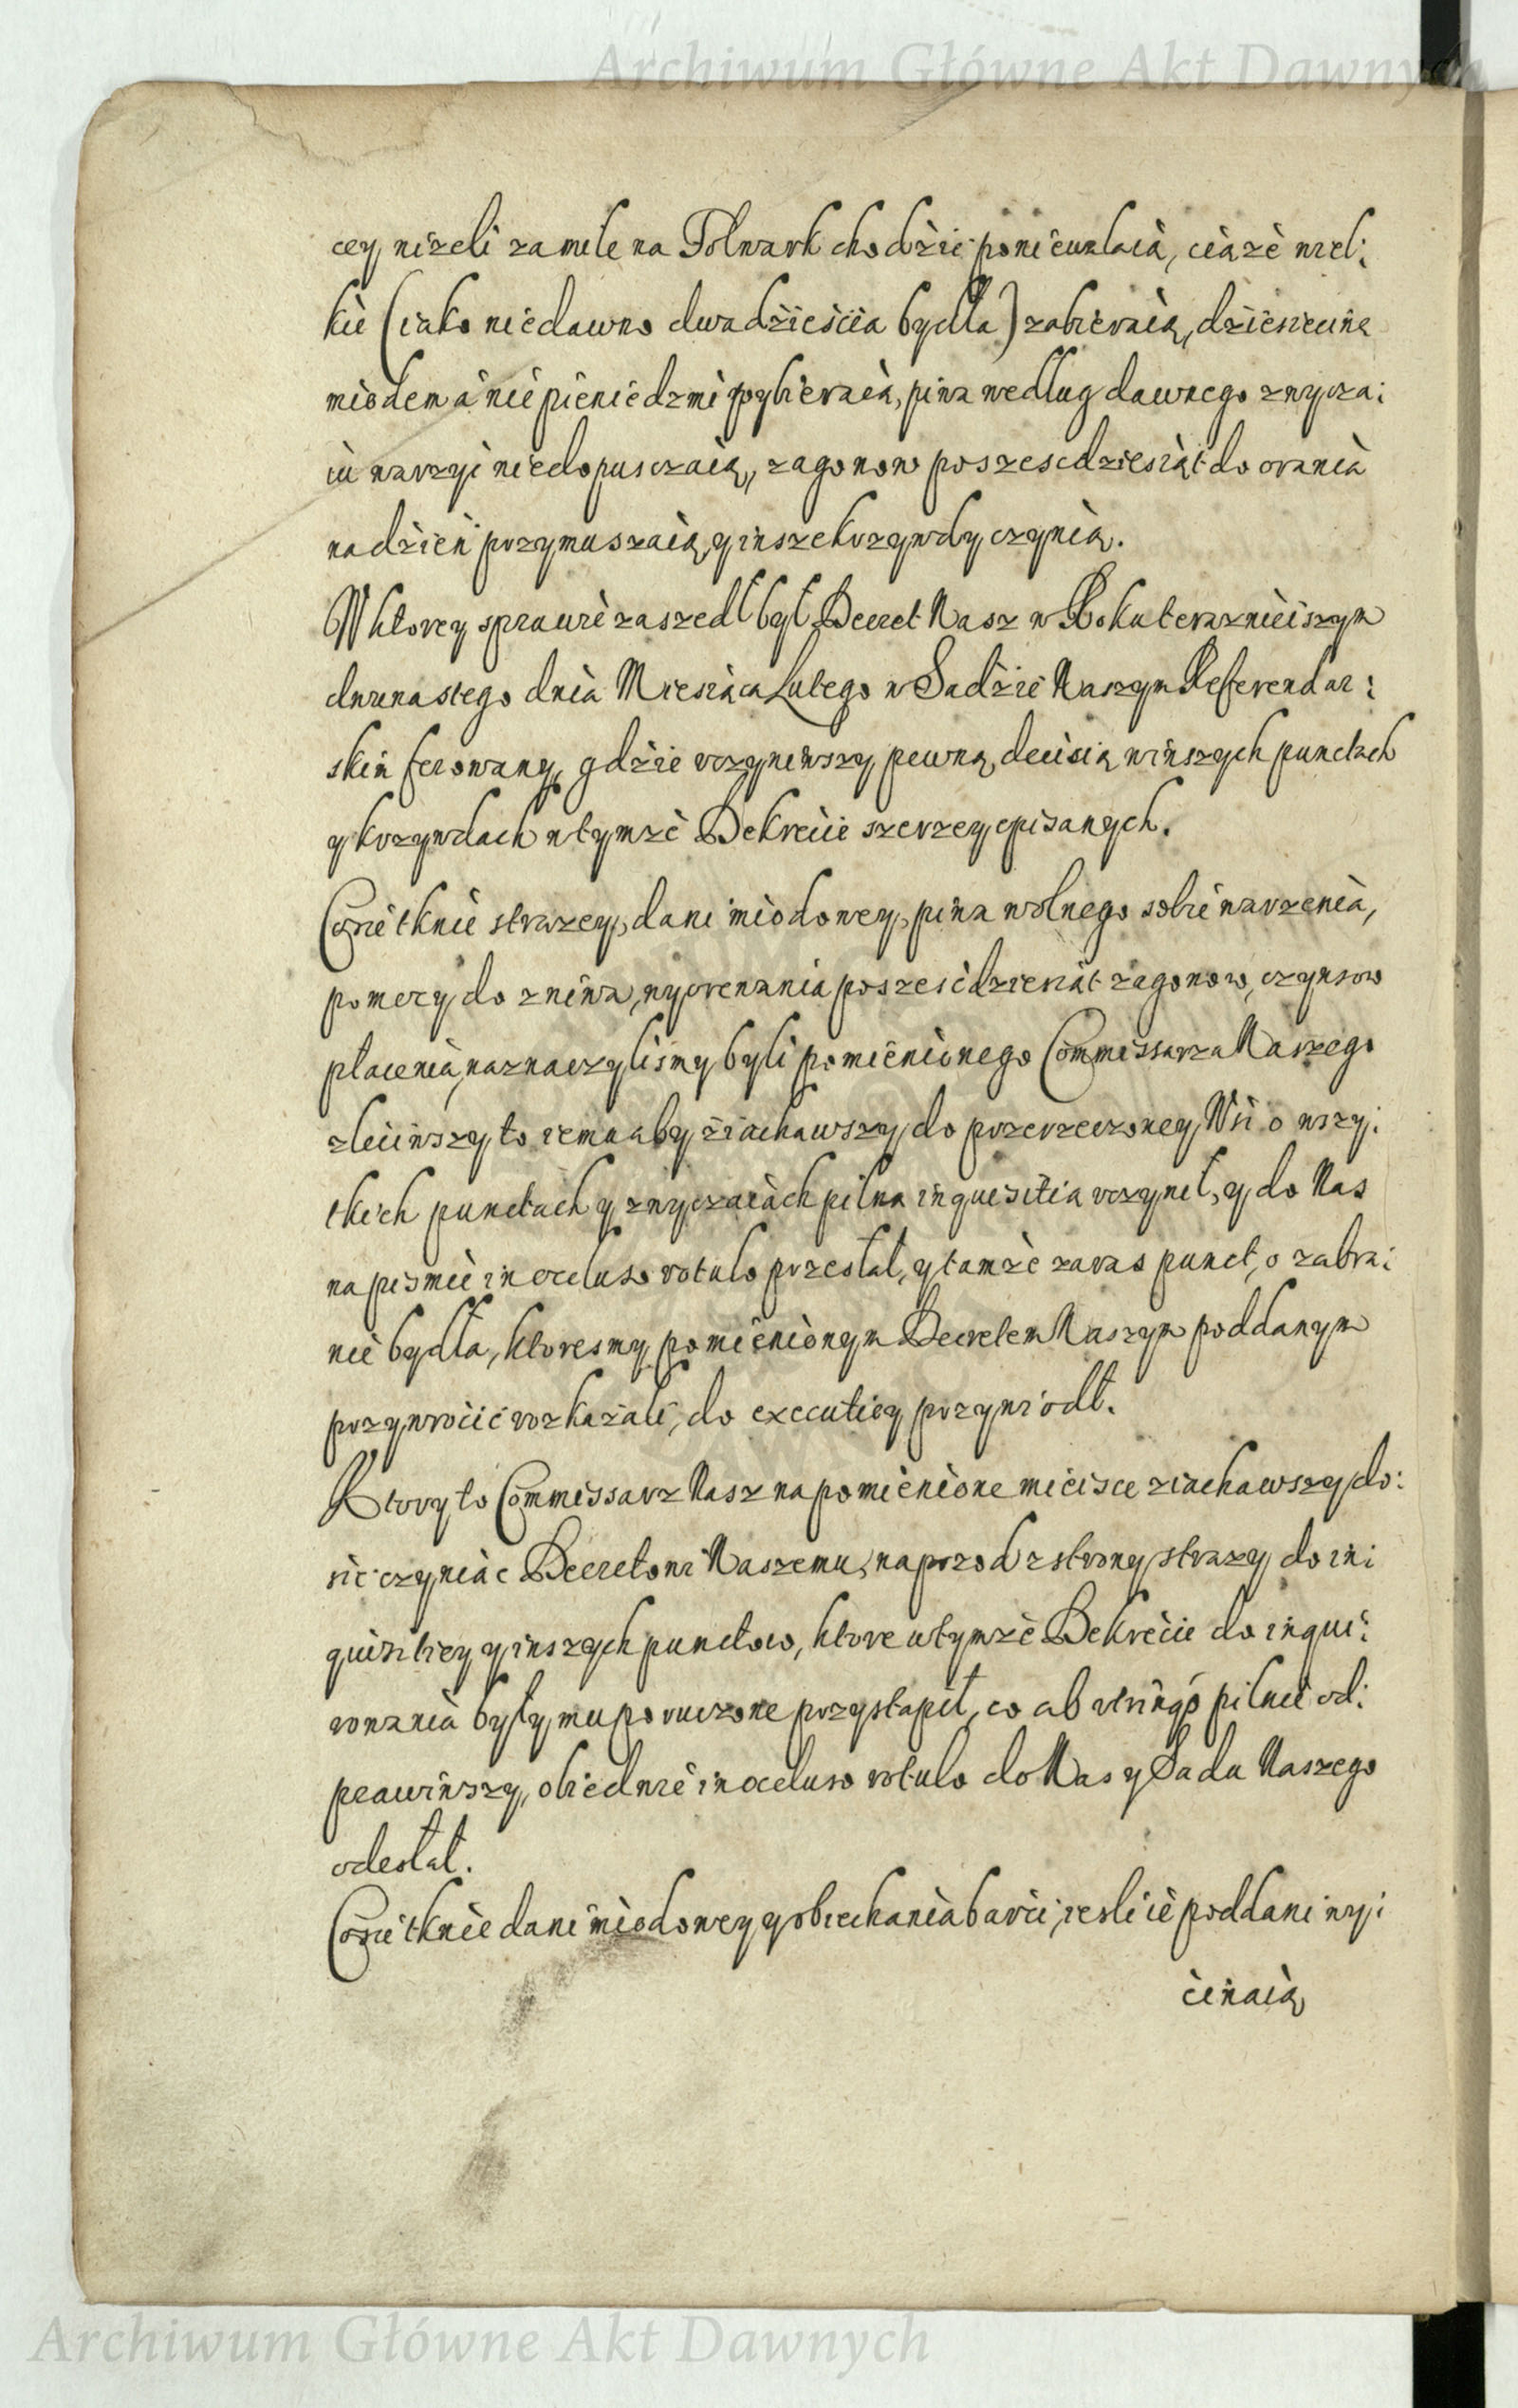 Archiwum Główne Akt Dawnych
cey niżeli za mile na Folwark chodzić poniewalaią, ciąże wiel:
kie (iako niedawno dwadzieścia bydła) zabieraią, dziesięcinę
miodem a nie pieniędzmi wybieraią, piwa według dawnego zwycza:
iu warzyć niedopusczaią, zagonow poszescdziesiąt do orania
na dzień przymuszaią, y insze krzywdy czynią.
W ktorey sprawie zaszedł był Decret Nasz w Roku teraznieiszym
dwunastego dnia Miesiąca Lutego w Sądzie Naszym Referendar:
skim ferowany, gdzie vczyniwszy pewną decisią w inszych punctach
y krzywdach w tymże Dekrecie szerzey opisanych.
Co się tknie strazey, dani miodowey, piwa wolnego sobie warzenia,
pomocy do żniwa, wyorywania poszescdziesiąt zagonow, czynszow
płacenia, naznaczylismy byli pomienionego Commissarza Naszego
zleciwszy to iemu aby ziachawszy do przerzeczoney Wsi o wszy:
tkich punctach y zwyczaiach pilną inquisitią vczynił, y do Nas
na pismie in occluso rotulo przesłał, y tamże zaraz punct, o zabra:
nie bydła, ktoresmy pomienionym Decretem Naszym poddanym
przywrocić rozkazali, do executiey przywiodł.
Ktory to Commissarz Nasz na pomienione mieisce ziachawszy do:
sić czyniąc Decretowi Naszemu, naprzod z strony strazy do in:
quisitiey y inszych punctow, ktore w tymże Dekrecie do inqui:
rowania były mu poruczone przystąpił, co ab utrinq₃ pilnie od:
prawiwszy, obiedwie in occluso rotulo do Nas y Sądu Naszego
odesłał.
Co się tknie dani miodowey y obiechania barci, iesli ie poddani wy:
cinaią
Archiwum Główne Akt Dawnych